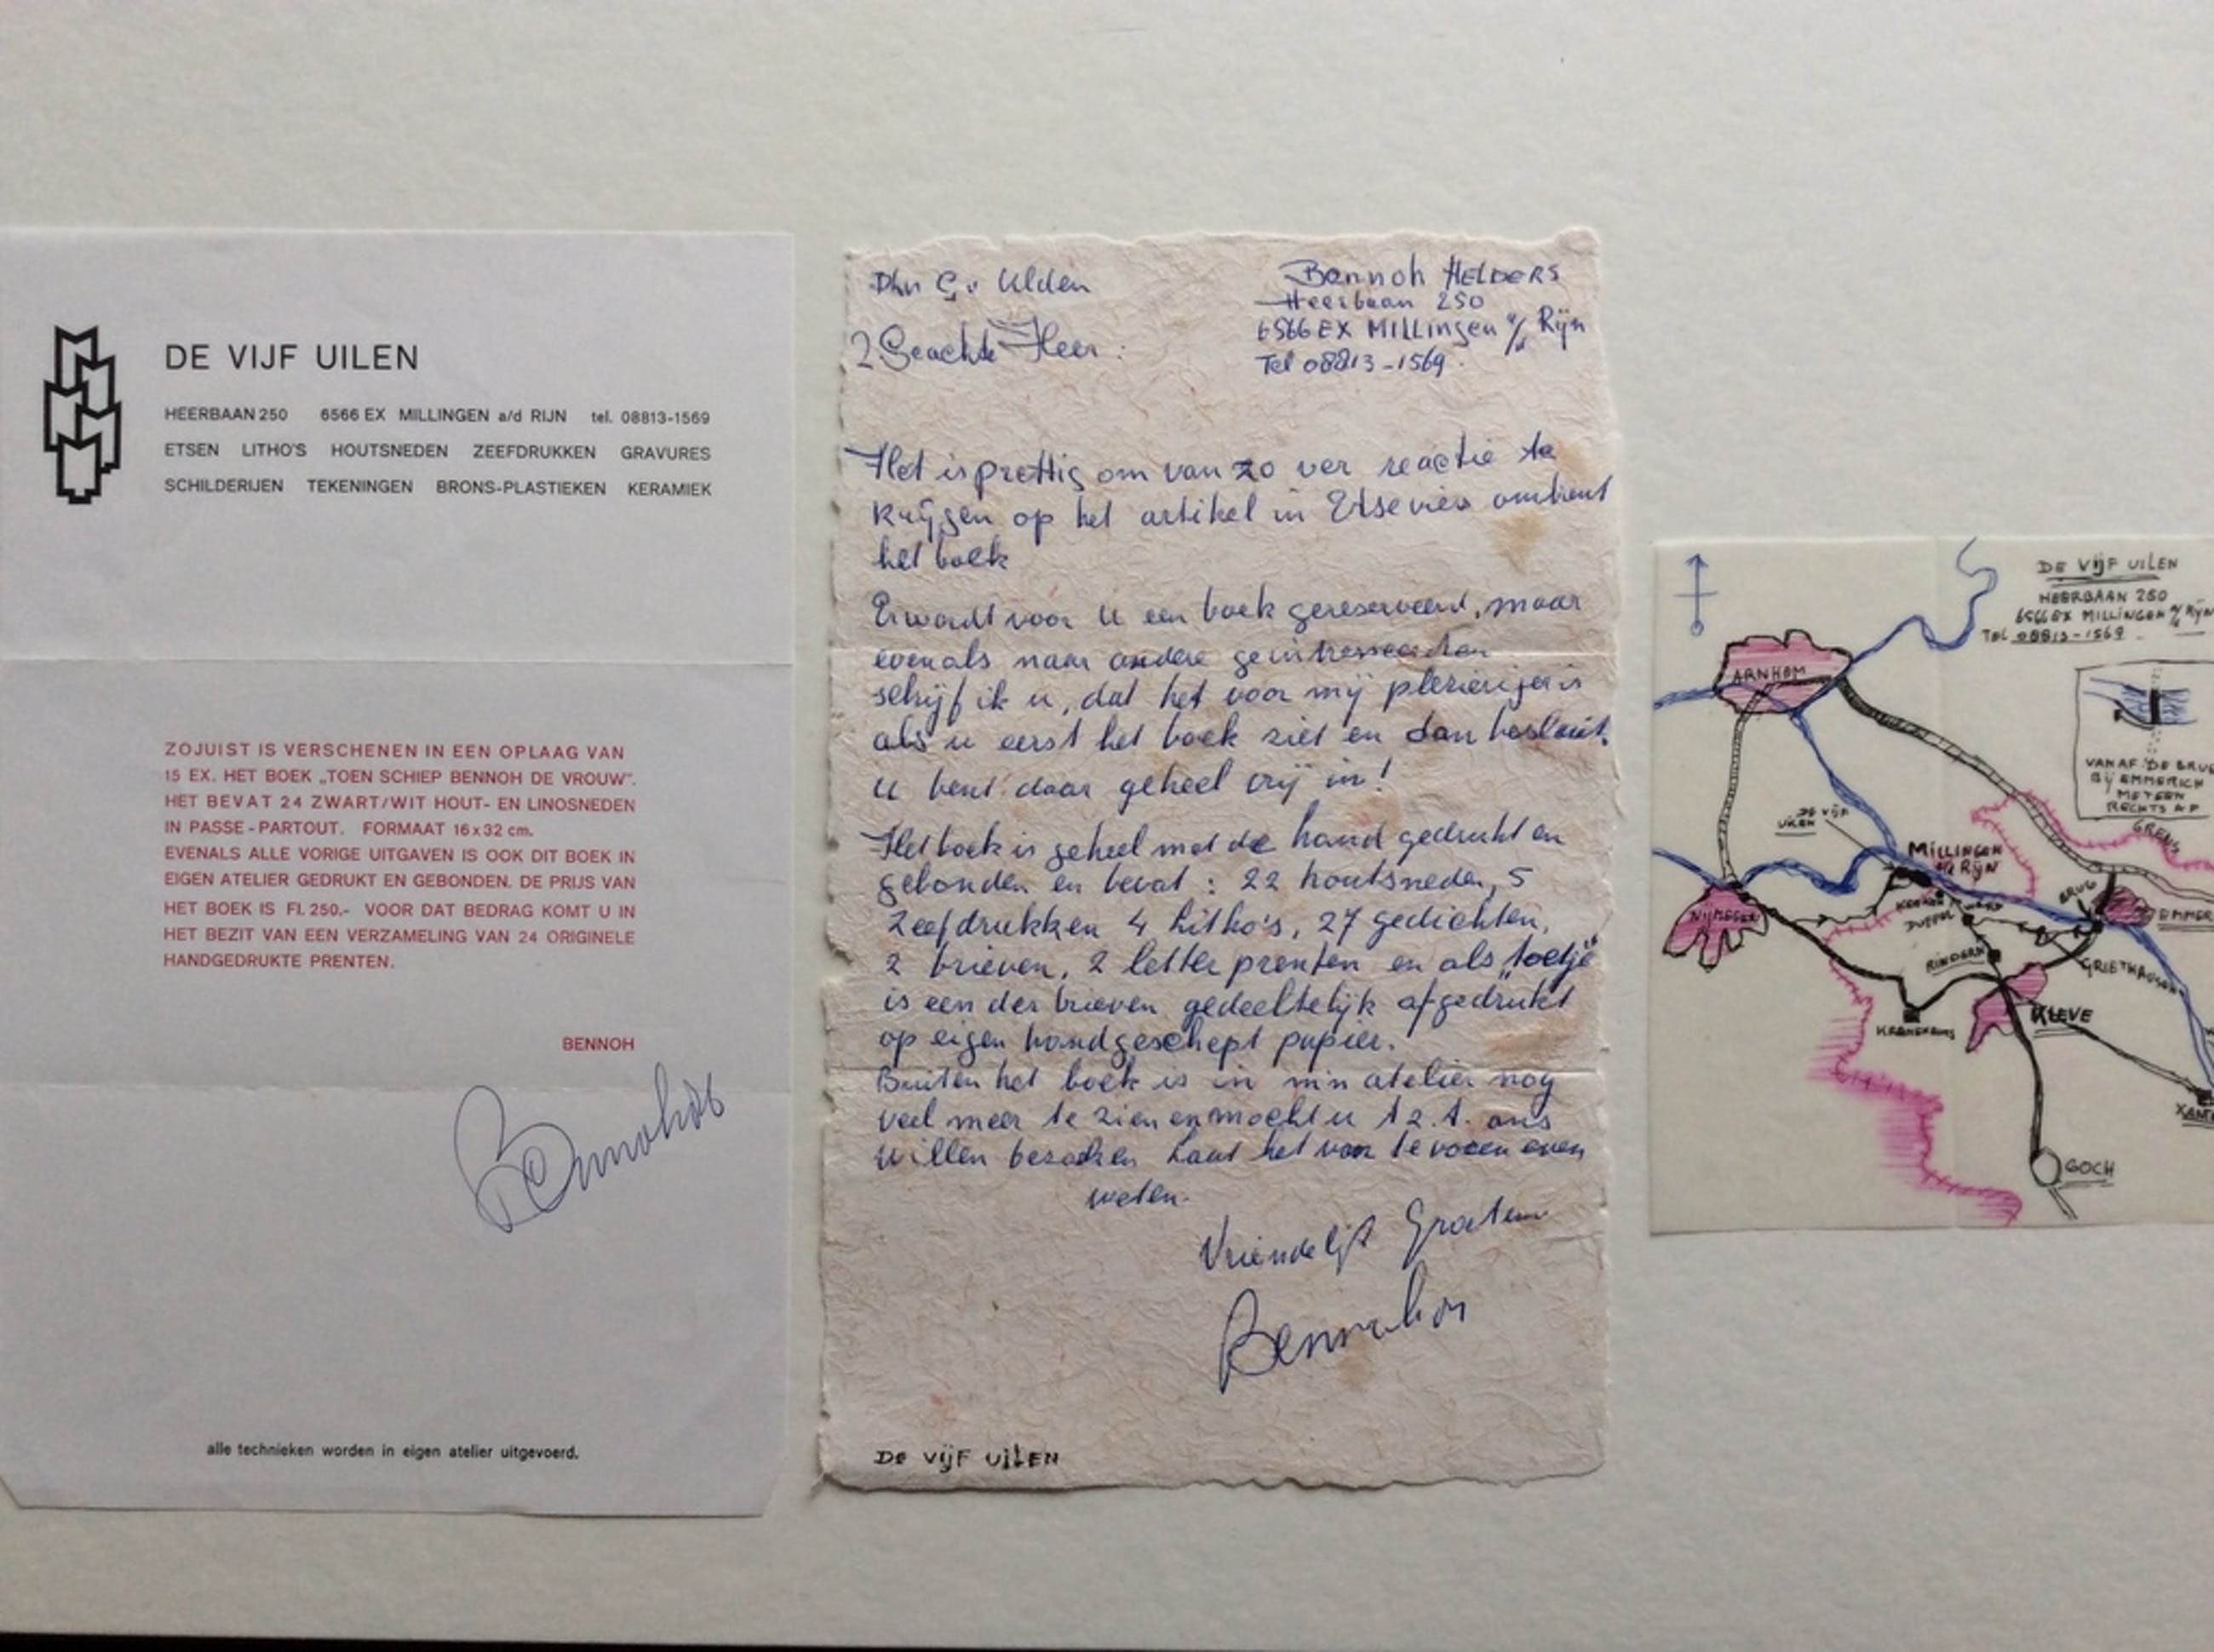 DE VIJF UILEN
HEERBAAN 250 6566 EX MILLINGEN a/d RIJN tel. 08813-1569
ETSEN LITHO'S HOUTSNEDEN ZEEFDRUKKEN GRAVURES
SCHILDERIJEN TEKENINGEN BRONS-PLASTIEKEN KERAMIEK
ZOJUIST IS VERSCHENEN IN EEN OPLAAG VAN
15 EX. HET BOEK „TOEN SCHIEP BENNOH DE VROUW".
HET BEVAT 24 ZWART/WIT HOUT- EN LINOSNEDEN
IN PASSE-PARTOUT. FORMAAT 16x32 cm.
EVENALS ALLE VORIGE UITGAVEN IS OOK DIT BOEK IN
EIGEN ATELIER GEDRUKT EN GEBONDEN. DE PRIJS VAN
HET BOEK IS Fl. 250.- VOOR DAT BEDRAG KOMT U IN
HET BEZIT VAN EEN VERZAMELING VAN 24 ORIGINELE
HANDGEDRUKTE PRENTEN.
BENNOH
alle technieken worden in eigen atelier uitgevoerd.
Dhr G. v Ulden
Bennoh HELDERS
Heerbaan 250
6566 EX MILLingen a/d Rijn
Tel 08813-1569.
Geachte Heer:
Het is prettig om van zo ver reactie te
krijgen op het artikel in Elsevier omtrent
het boek
Er wordt voor U een boek gereserveerd, maar
evenals naar andere geintresseerden
schrijf ik u, dat het voor mij plezieriger is
als u eerst het boek ziet en dan besluit.
U bent daar geheel vrij in!
Het boek is geheel met de hand gedrukt en
gebonden en bevat: 22 houtsneden, 5
zeefdrukken 4 Litho's, 27 gedichten,
2 brieven, 2 letter prenten en als „toetje"
is een der brieven gedeeltelijk afgedrukt
op eigen handgeschept papier.
Buiten het boek is in m'n atelier nog
veel meer te zien en mocht u t.z.t. ons
willen bezoeken laat het van te voren even
weten.
Vriendelijk Groetend
Bennoh
DE VIJF UILEN
DE VIJF UILEN
HEERBAAN 250
6566 EX MILLINGEN a/d Rijn
Tel 08813-1569
ARNHEM
VANAF DE BRUG
BIJ EMMERICH
METEEN
RECHTS AF
GRENS
DE VIJF
UILEN
MILLINGEN
a/d RIJN
NIJMEGEN
KEEKEN
DUFFEL WARD
BRUG
EMMER
RINDERN
GRIETHAUSEN
KRANENBURG
KLEVE
XANT
GOCH